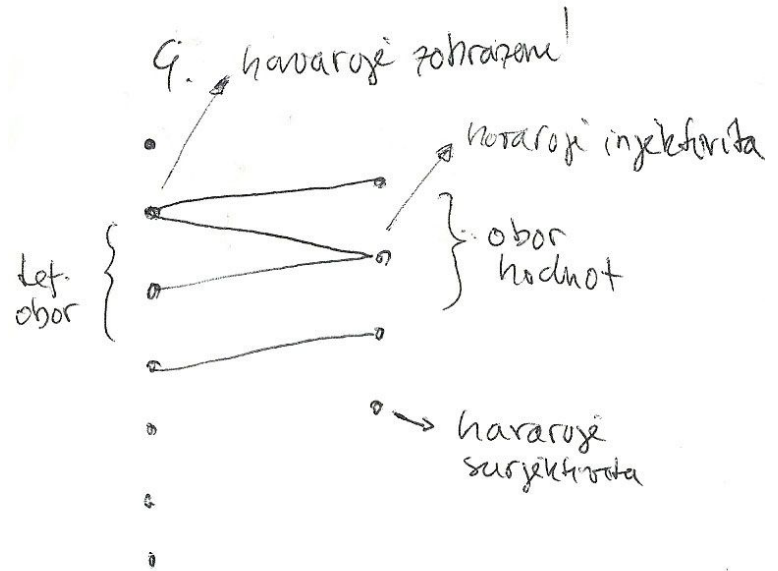 G. havaruje zobrazení
havaruje injektivita
obor
hodnot
def.
obor
havaruje
surjektivita